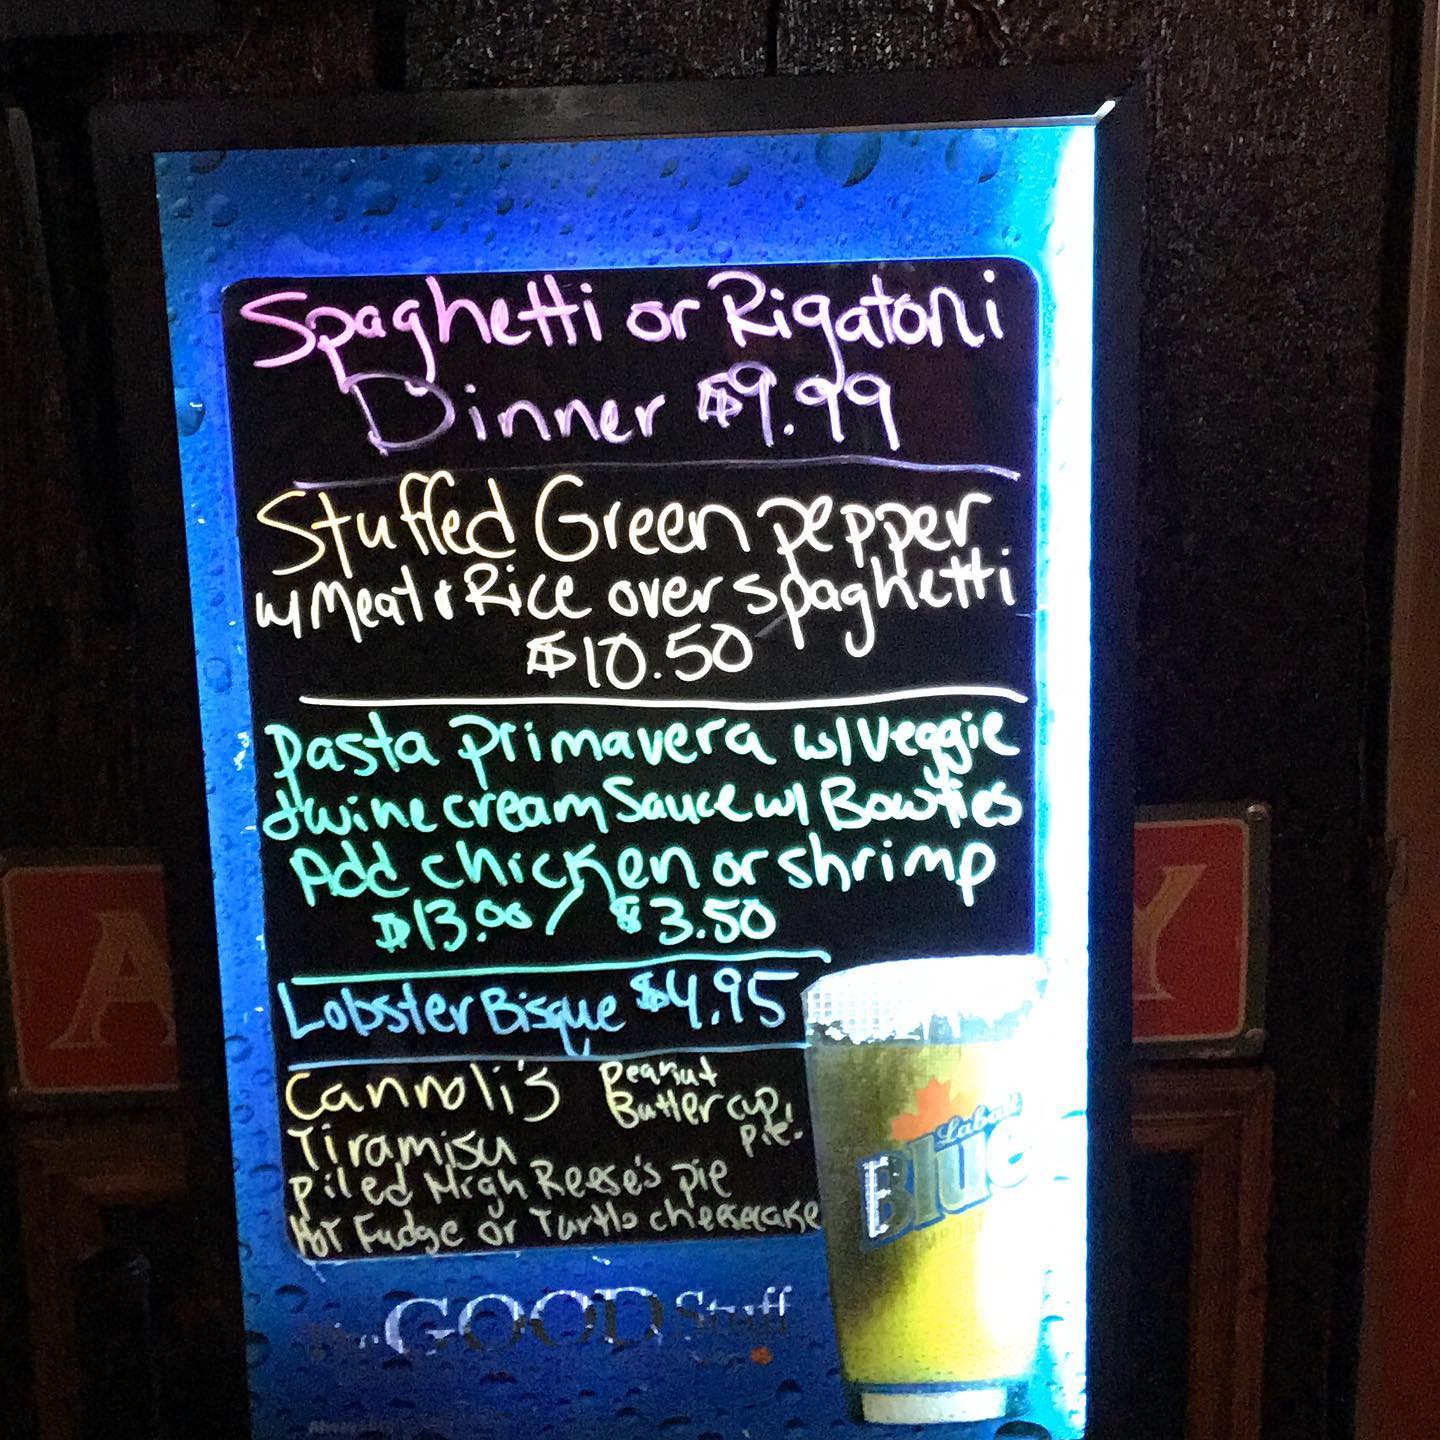 Spaghetti or Rigatoni
Dinner $9.99
Stuffed Green pepper
w/ Meat & Rice over spaghetti
$10.50
Pasta primavera w/ Veggie
& wine cream Sauce w/ Bowties
Add chicken or shrimp
$13.00 / $3.50
Lobster Bisque $4.95
Cannoli's
Peanut
Butter cup
Pie.
Tiramisu
Piled High Reese's pie
Hot Fudge or Turtle cheesecake
A
Y
Labatt
Blue
IMPORT
GOOD Stuff